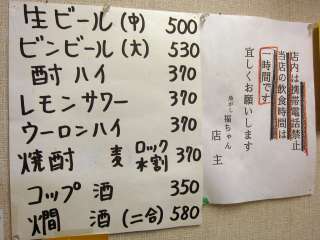 生ビール(中) 500
ビンビール(大) 530
酎ハイ 370
レモンサワー 370
ウーロンハイ 370
焼酎 麦 ロック 水割 370
コップ酒 350
燗酒(二合) 580
店内は携帯電話禁止
当店の飲食時間は
一時間です
宜しくお願いします
福ちゃん
店主